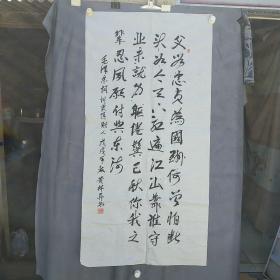 父母忠贞為國酬何曾怕断
头如今天下红遍江山靠谁守
业未就身躯倦鬓已秋你我之
辈忍夙愿付與东流
毛泽东词诉衷情